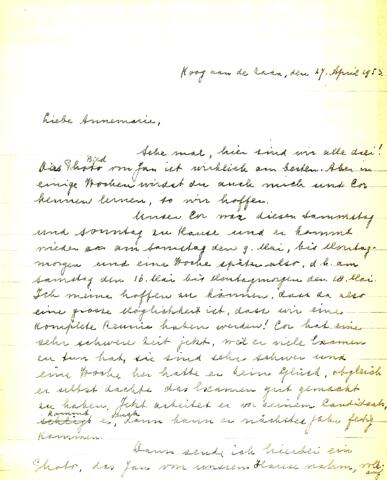 Koog aan de Zaan, den 27. April 1953
Liebe Annemarie,
Sehe mal, hier sind wir alle drei!
Bild
Das Photo von Jan ist wirklich am besten. Aber in
einige Wochen wirst du auch mich und Cor
kennen lernen, so wir hoffen.
Unser Cor war diesen Sammstag
und Sonntag zu Hause und er kommt
wieder am Samstag den 9. Mai, bis Montag-
morgen und eine Woche später also, d.h. am
samstag den 16. Mai bis Montagmorgen den 18. Mai.
Ich meine hoffen zu können, dass da also
eine grosse Möglichkeit ist, dass wir eine
komplete Reunie haben werden! Cor hat eine
sehr schwere Zeit jetzt, weil er viele Examen
zu tun hat, sie sind sehr schwer und
eine Woche her hatte er kein Glück, obgleich
er selbst dachte das Examen gut gemacht
zu haben. Jetzt arbeitet er vor seinem Candidaats,
kommt durch
er, dann kann er nächstes Jahr fertig
kommen.
Dann sende ich hierbei ein
Photo, das Jan von unserem Hause nahm,